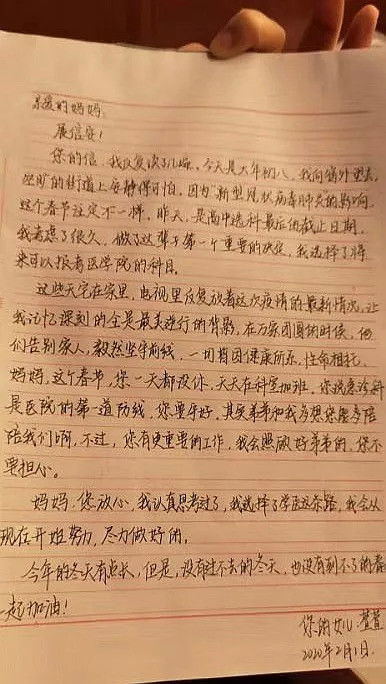 亲爱的妈妈:
展信安!
您的信,我反复读了几遍,今天是大年初八,我向窗外望去,
空旷的街道上安静得可怕,因为“新型冠状病毒肺炎”的影响,
这个春节注定不一样。昨天,是高中选科最后的截止日期,
我考虑了很久,做了这辈子第一个重要的决定,我选择了将
来可以报考医学院的科目。
这些天宅在家里,电视里反复放着这次疫情的最新情况,让
我记忆深刻的全是最美逆行的背影,在万家团圆的时候,他
们告别家人,毅然坚守前线,一切皆因健康所系,性命相托。
妈妈,这个春节,您一天都没休,天天在科室加班。您说急诊科
是医院的第一道防线,您要守好。其实弟弟和我多想您能多陪
陪我们啊,不过,您有更重要的工作,我会照顾好弟弟的,您不
要担心。
妈妈,您放心,我认真思考过了,我选择了学医这条路,我会从
现在开始努力,尽力做好的。
今年的冬天有点长,但是,没有过不去的冬天,也没有到不了的春
一起加油!
您的女儿:萱萱
2020年2月1日.